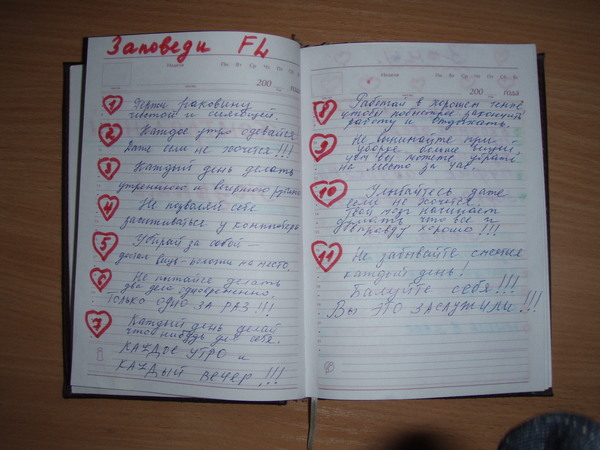 Заповеди FL
Неделя Пн Вт Ср Чт Пт Сб Вс
200 года
1 Держи раковину
чистой и сияющей.
2 Каждое утро одевайся
даже если не хочется!!!
3 Каждый день делать
утреннюю и вечернюю рутину
4 Не позволяй себе
засиживаться у компьютера
5 Убирай за собой –
вещь – положи на место.
6 Не пытайся делать
два дела одновременно.
Только ОДНО ЗА РАЗ!!!
7 Каждый день делай
что-нибудь для себя.
КАЖДОЕ УТРО и
КАЖДЫЙ ВЕЧЕР!!!
Неделя Пн Вт Ср Чт Пт Сб Вс
200 года
8 Работай в хорошем темпе
чтобы побыстрее закончить
работу и отдыхать.
9 Не вынимайте при
уборке больше вещей
чем вы можете убрать
на место за час.
10 Улыбайтесь даже
если не хочется.
Твой мозг начинает
думать что все и
вправду хорошо!!!
11 Не забывайте смеяться
каждый день!
Балуйте себя!!!
Вы ЭТО ЗАСЛУЖИЛИ!!!